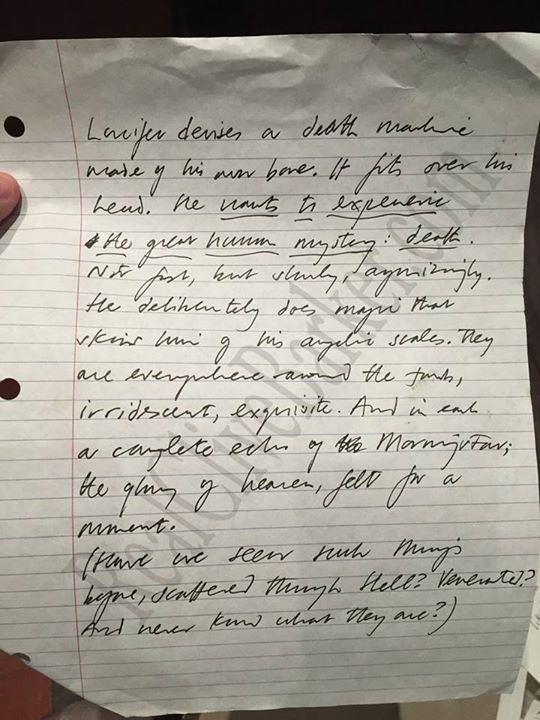 Lucifer devises a death machine
made of his own bone. It fits over his
head. He wants to experience
the great human mystery: death.
Not fast, but slowly, agonizingly.
He deliberately does magic that
skins him of his angelic scales. They
are everywhere around the tomb,
irridescent, exquisite. And in each
a complete echo of Morningstar;
the glory of heaven, felt for a
moment.
(Have we seen such things
before, scattered through Hell? Venerated?
And never know what they are?)
RealCliveBarker.com